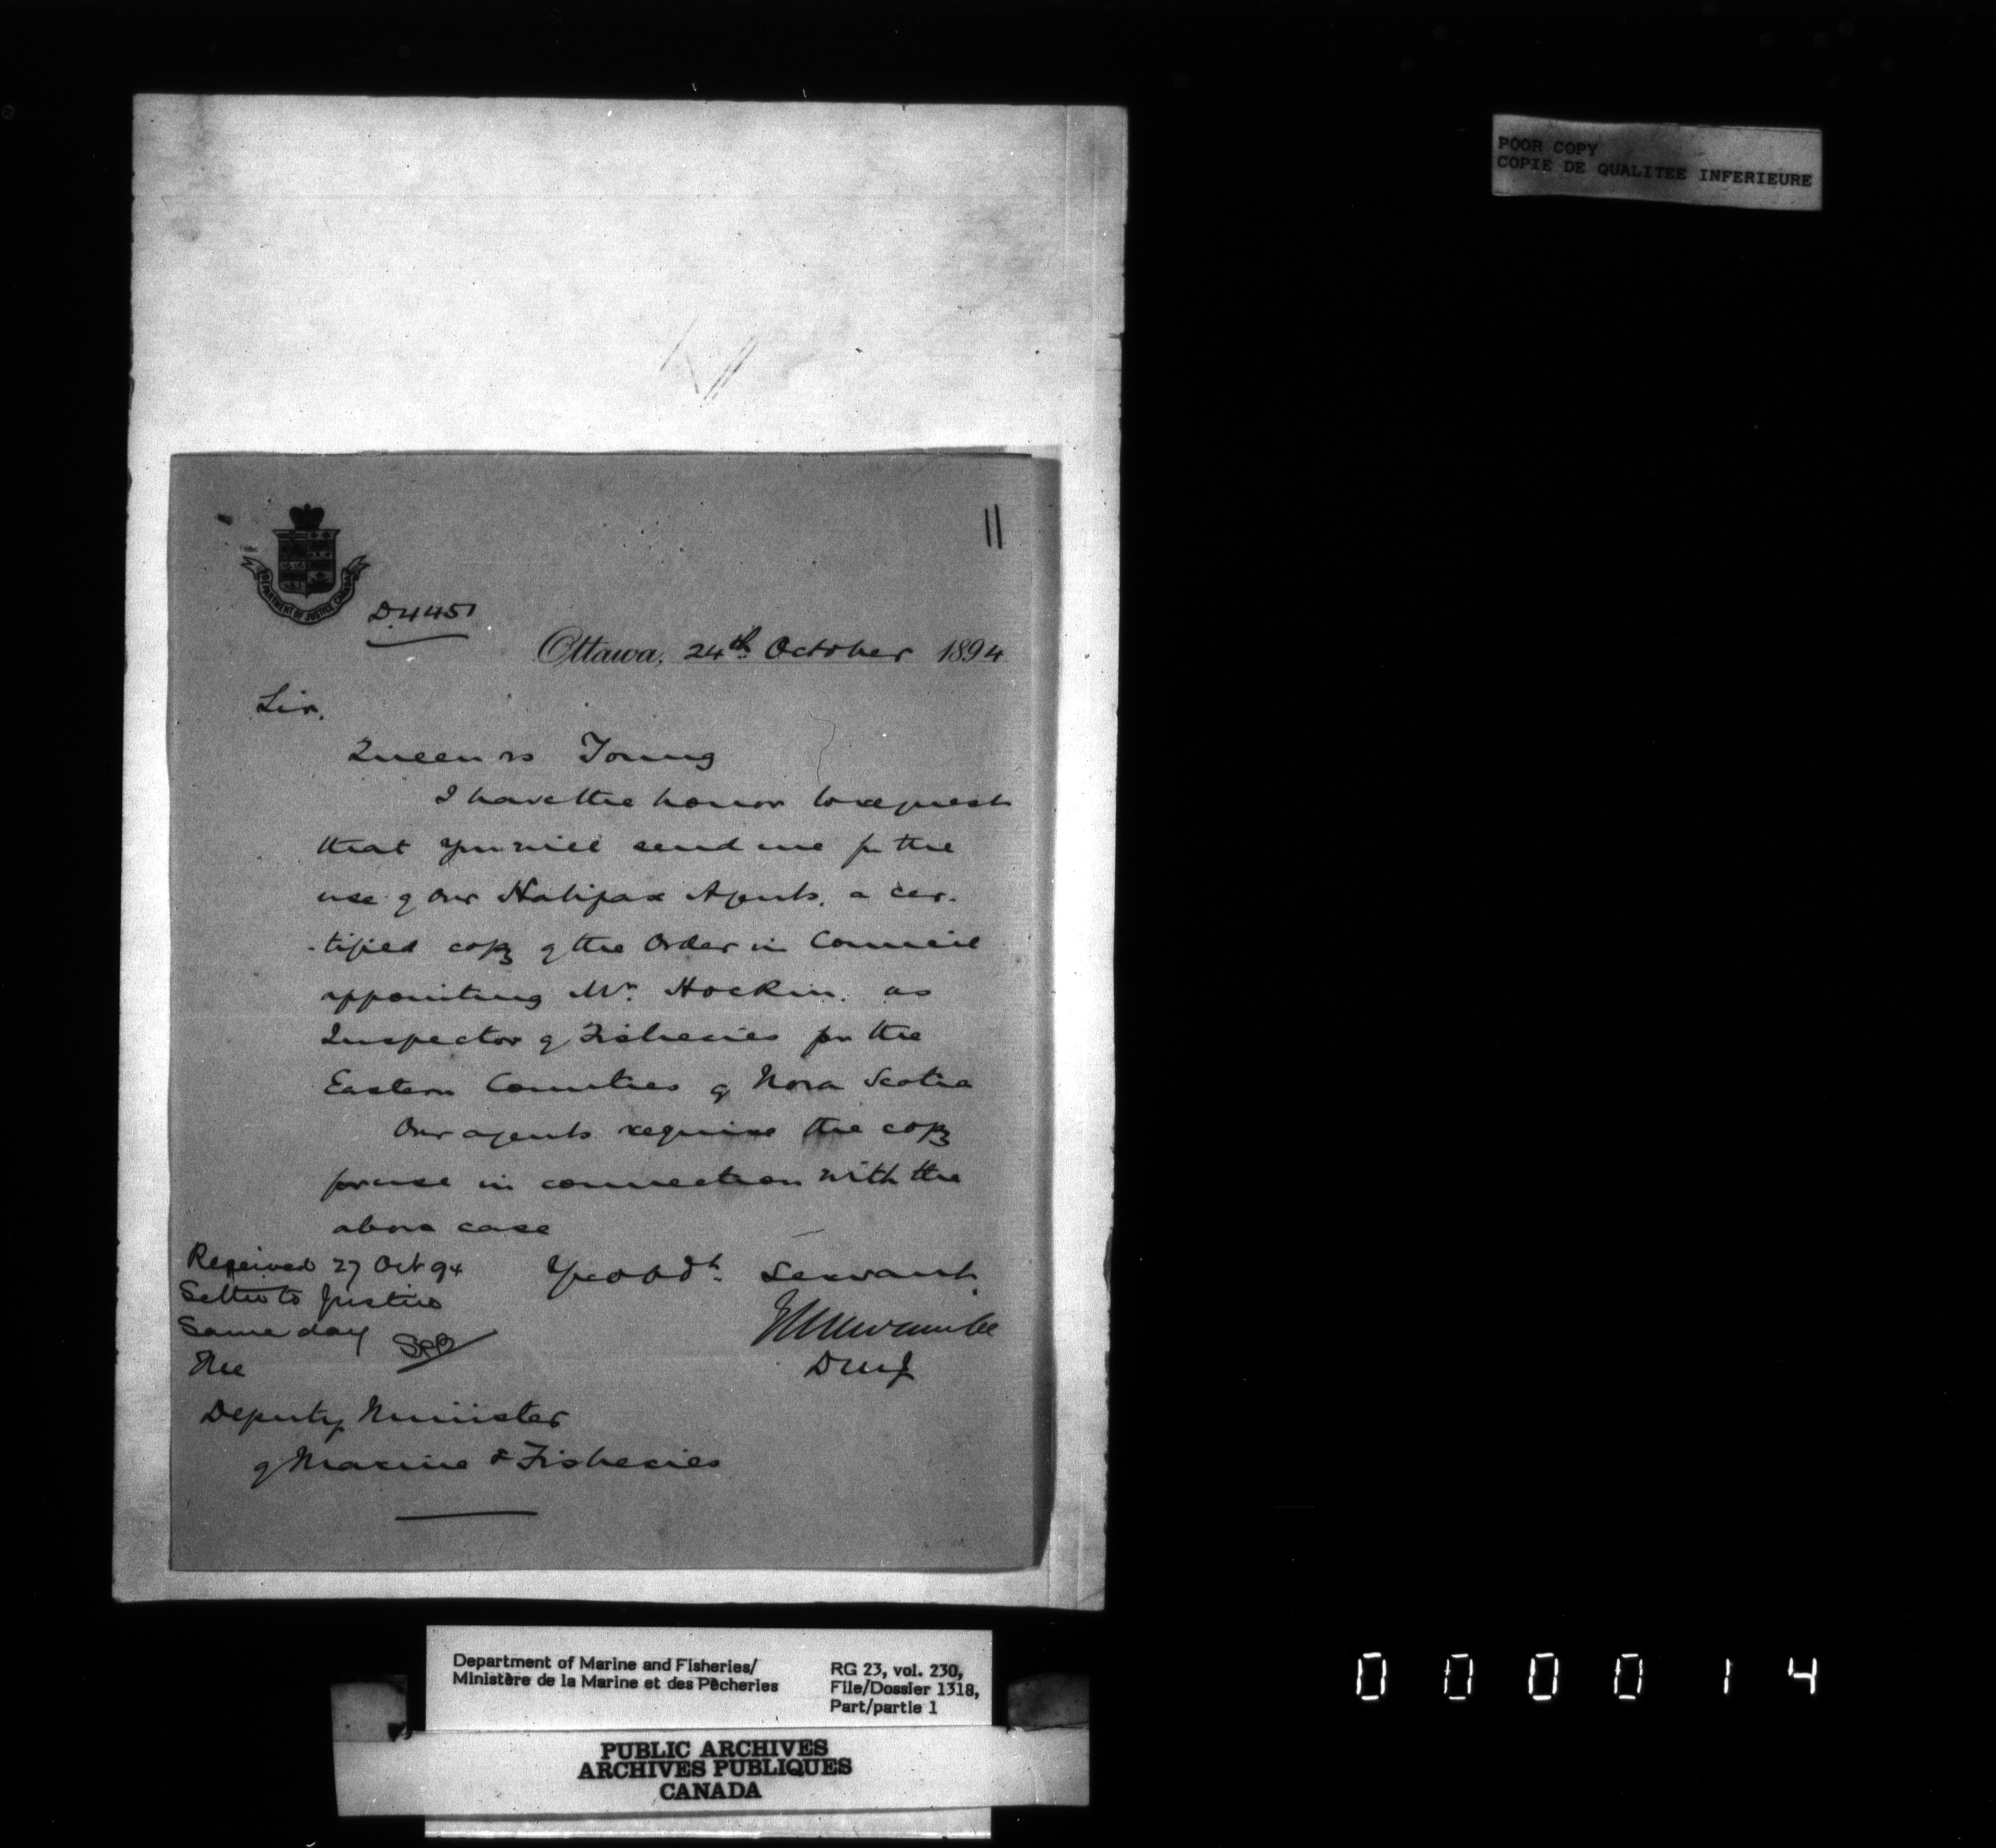 POOR COPY
COPIE DE QUALITEE INFERIEURE
11
DEPARTMENT OF JUSTICE CANADA
D.4451
Ottawa, 24th October 1894
Sir,
Queen vs Young
I have the honor to request
that you will send me for the
use of our Halifax Agents, a cer-
-tified copy of the Order in Council
appointing Mr. Hockin. as
Inspector of Fisheries for the
Eastern Counties of Nova Scotia
Our agents require the copy
for use in connection with the
above case
Received 27 Oct 94
to Justice
Same day
Yr obdt. Servant.
E L Newcombe
DMJ
The
Deputy Minister
of Marine & Fisheries
Department of Marine and Fisheries/
Ministère de la Marine et des Pêcheries
RG 23, vol. 230,
File/Dossier 1318,
Part/partie 1
PUBLIC ARCHIVES
ARCHIVES PUBLIQUES
CANADA
000014